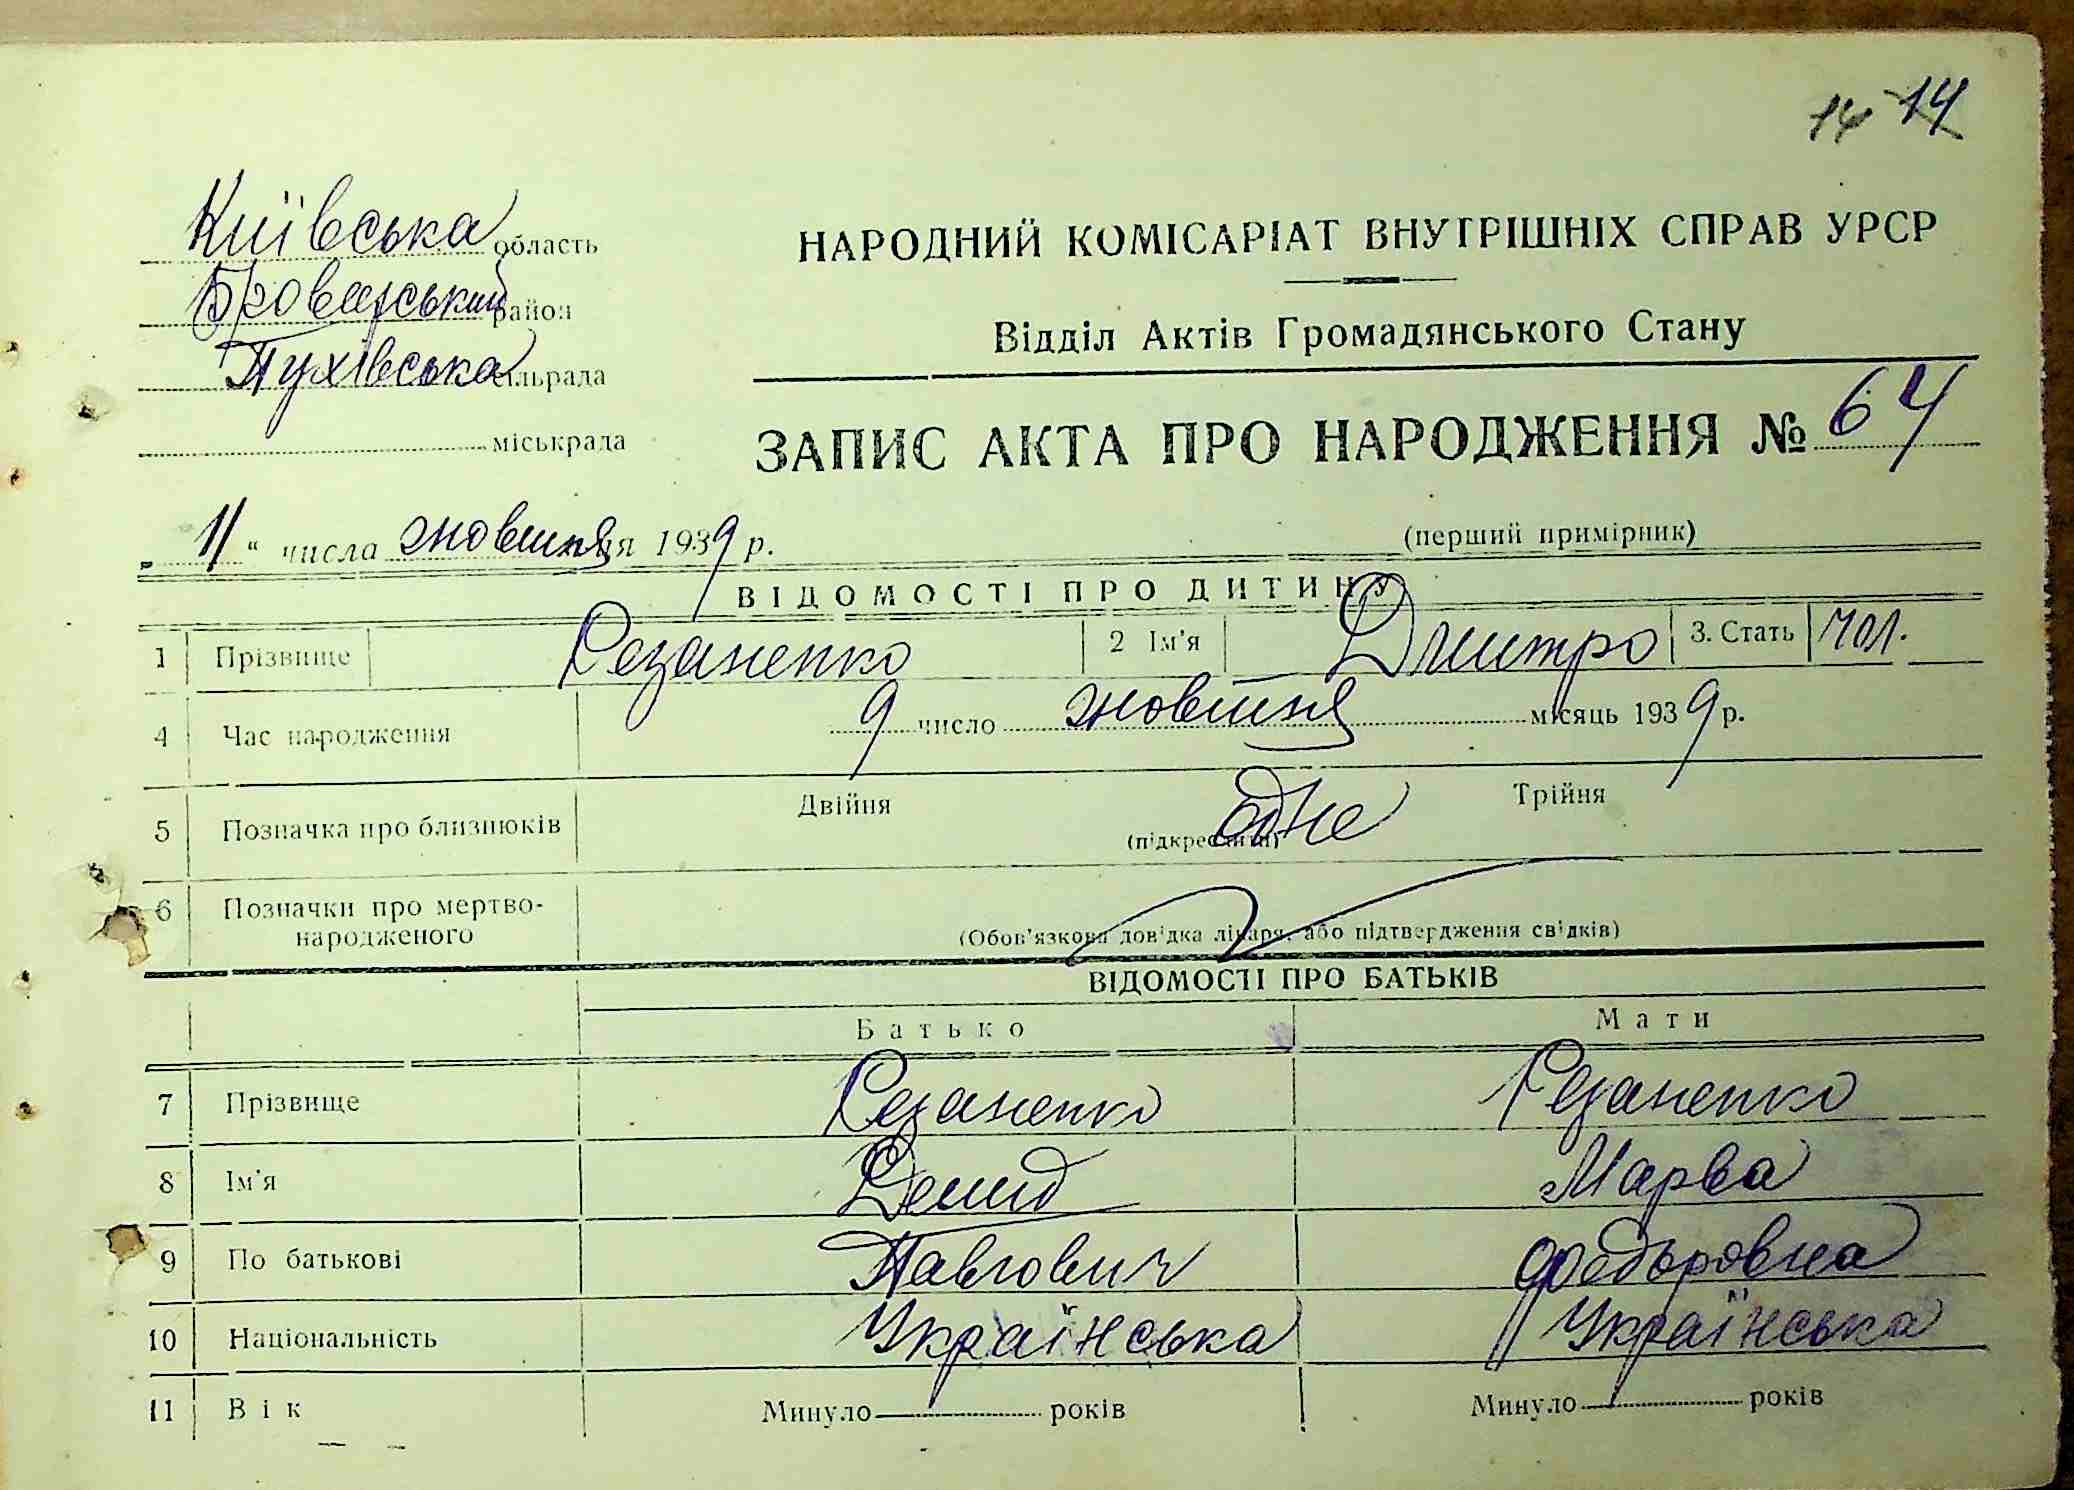 14 14
Київська область
Броварський район
Пухівська сільрада
міськрада
НАРОДНИЙ КОМІСАРІАТ ВНУТРІШНІХ СПРАВ УРСР
Відділ Актів Громадянського Стану
ЗАПИС АКТА ПРО НАРОДЖЕННЯ № 64
„ 11 “ числа жовтня ця 1939 р.
(перший примірник)
ВІДОМОСТІ ПРО ДИТИНУ
1 Прізвище Резаненко 2 Ім'я Дмитро 3. Стать чол.
4 Час народження 9 число жовтня місяць 1939 р.
5 Позначка про близнюків Двійня одне Трійня
(підкреслити)
6 Позначки про мертво-
народженого
(Обов'язкова довідка лікаря, або підтвердження свідків)
ВІДОМОСТІ ПРО БАТЬКІВ
Батько Мати
7 Прізвище Резаненко Резаненко
8 Ім'я Демид Марва
9 По батькові Павлович Федьоровна
10 Національність Українська Українська
11 Вік Минуло років Минуло років